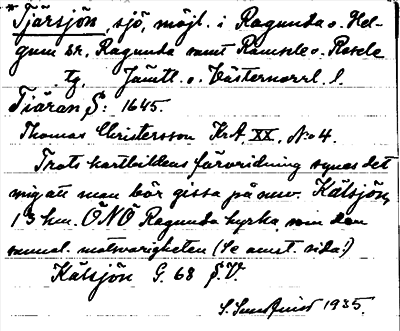 * Tjärsjön, sjö, möjl. i Ragunda o. Hel-
gum sr, Ragunda samt Ramsele o. Resele
tg, Jämtl. o. Västernorrl. l.
Tiäran S: 1645.
Thomas Christersson KrA. XX, No 4.
Trots kartbildens förvridning synes det
mig att man bör gissa på nuv. Kälsjön,
13 km. ÖNÖ Ragunda kyrka, som den
numal. motsvarigheten (Se anst. sida!)
Kälsjön G. 68 S.V.
S. Sundquist 1935.